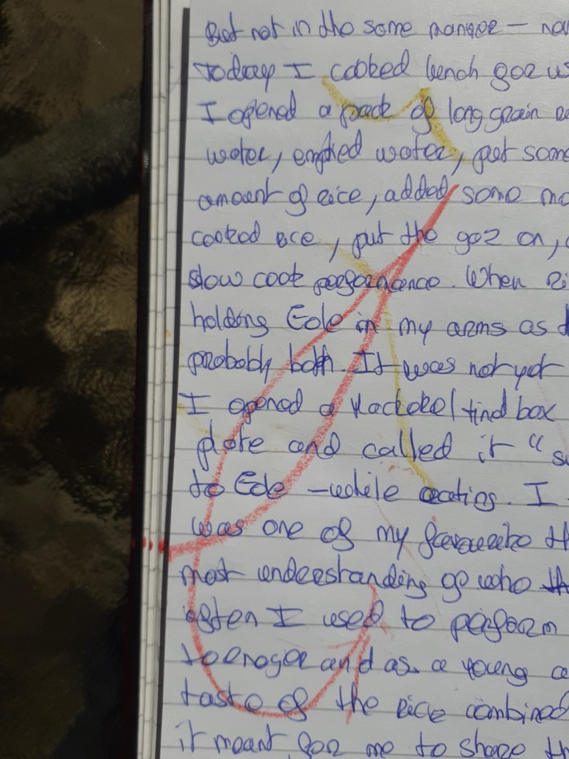 But not in the same manner — no
Today I cooked lunch for us
I opened a pack of long grain
water, emptied water, put some
amount of rice, added some mo
cooked rice, put the goz on,
slow cook performance. When Ri
holding Eole in my arms as
probably both. It was not yet
I opened a Mackerel tind box
plate and called it "s
to Eole – while eating. I
was one of my favourite th
most understanding go who
often I used to perform
teenager and as a young a
taste of the rice combined
it meant for me to share th